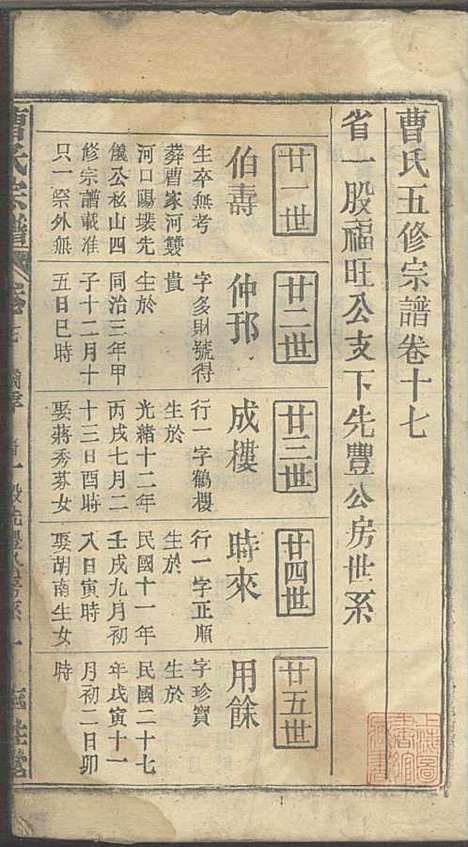 曹氏五修宗譜卷十七
省一股福旺公支下先豐公房世系
廿一世
伯壽
生卒無考
葬曹家河雙
河口陽壊先
儀公私山四
修宗譜載准
只一祭外無
廿二世
仲邘
字多財號得
貴
生於
同治三年甲
子十二月十
五日巳時
廿三世
成樓
行一字鶴樓
生於
光緒十二年
丙戌七月二
十三日酉時
娶蔣秀芬女
廿四世
時來
行一字正順
生於
民國十一年
壬戌九月初
入日寅時
娶胡南生女
廿五世
用餘
字珍寶
生於
民國二十七
年戊寅十一
月初二日卯
時
曹氏宗譜
上海圖書館藏書